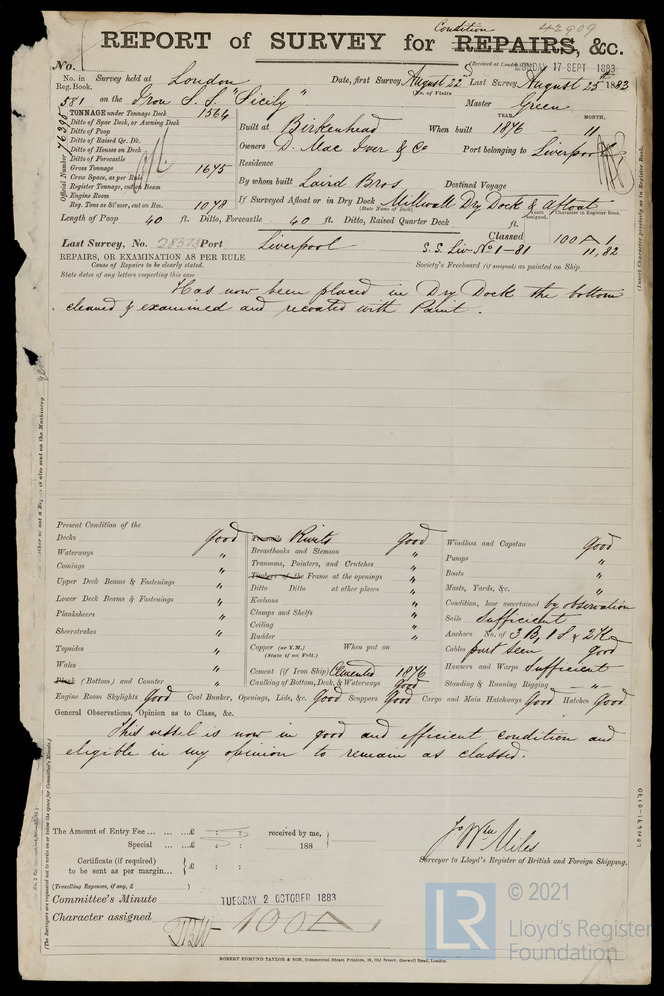 Condition 42909
REPORT of SURVEY for REPAIRS, &c.
No.
(Received at London Office) MONDAY 17 SEPT 1883
No. in Reg. Book. Survey held at London Date, first Survey August 22 Last Survey August 25th 1883
(No. of Visits
581 on the Iron S.S. "Sicily" Master Green
TONNAGE under Tonnage Deck 1564
Ditto of Spar Deck, or Awning Deck
Ditto of Poop
Ditto of Raised Qr. Dk.
Ditto of Houses on Deck
Ditto of Forecastle
Gross Tonnage 1675
Crew Space, as per Rule
Register Tonnage, cut on Beam
Engine Room
Reg. Tons as St'mer, cut on Bm. 1078
Official Number 76395
Built at Birkenhead When built YEAR. 1876 MONTH. 11
Owners D. Mac Iver & Co Port belonging to Liverpool
Residence
By whom built Laird Bros Destined Voyage
If Surveyed Afloat or in Dry Dock Millwall Dry Dock & Afloat
(State Name of Dock)
Length of Poop 40 ft. Ditto, Forecastle 40 ft. Ditto, Raised Quarter Deck ft.
Years Assigned. Character in Register Book.
Classed 100 A 1
Last Survey, No. 28573 Port Liverpool S.S. Liv. No 1-81 11,82
REPAIRS, OR EXAMINATION AS PER RULE Society's Freeboard (if assigned) as painted on Ship
Cause of Repairs to be clearly stated.
State dates of any letters respecting this case
Has now been placed in Dry Dock the bottom
cleaned & examined and recoated with Paint.
Present Condition of the
Decks Good
Waterways "
Comings "
Upper Deck Beams & Fastenings "
Lower Deck Beams & Fastenings "
Planksheers "
Sheerstrakes "
Topsides "
Wales "
Plank (Bottom) and Counter "
Treenails Rivits Good
Breasthooks and Stemson "
Transoms, Pointers, and Crutches "
Timbers of the Frame at the openings "
Ditto Ditto at other places "
Keelsons "
Clamps and Shelfs "
Ceiling "
Rudder "
Copper (or Y.M.) When put on
(State if on Felt.)
Cement (if Iron Ship) Cemented 1876
Caulking of Bottom, Deck, & Waterways Good
Windlass and Capstan Good
Pumps "
Boats "
Masts, Yards, &c. "
Condition, how ascertained by observation
Sails Sufficient
Anchors No. of 3 B, 1 S & 2 K
Cables part seen Good
Hawsers and Warps Sufficient
Standing & Running Rigging "
Engine Room Skylights Good Coal Bunker, Openings, Lids, &c. Good Scuppers Good Cargo and Main Hatchways Good Hatches Good
General Observations, Opinion as to Class, &c.
This vessel is now in good and efficient condition and
eligible in my opinion to remain as classed.
The Amount of Entry Fee ... ... £ : : received by me,
Special ... ... £ 5 : : 188
Certificate (if required) to be sent as per margin... £ : :
(Travelling Expenses, if any, £ )
Jo Wm Miles
Surveyor to Lloyd's Register of British and Foreign Shipping.
Committee's Minute TUESDAY 2 OCTOBER 1883
Character assigned 100 A 1
ROBERT EDMUND TAYLOR & SON, Commercial Steam Printers, 19, Old Street, Goswell Road, London.
(The Surveyors are requested not to write on or below the space for Committee's Minute.)
LR © 2021
Lloyd's Register
Foundation